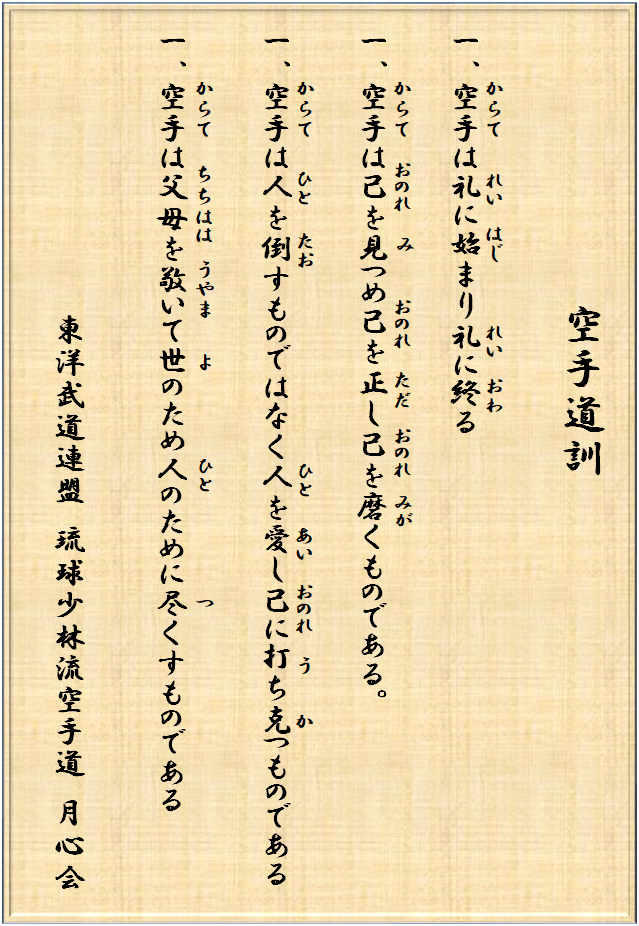 空手道訓
一、空手は礼に始まり礼に終る
からて れい はじ れい おわ
一、空手は己を見つめ己を正し己を磨くものである。
からて おのれ み おのれ ただ おのれ みが
一、空手は人を倒すものではなく人を愛し己に打ち克つものである
からて ひと たお ひと あい おのれ う か
一、空手は父母を敬いて世のため人のために尽くすものである
からて ちちはは うやま よ ひと つ
東洋武道連盟 琉球少林流空手道 月心会